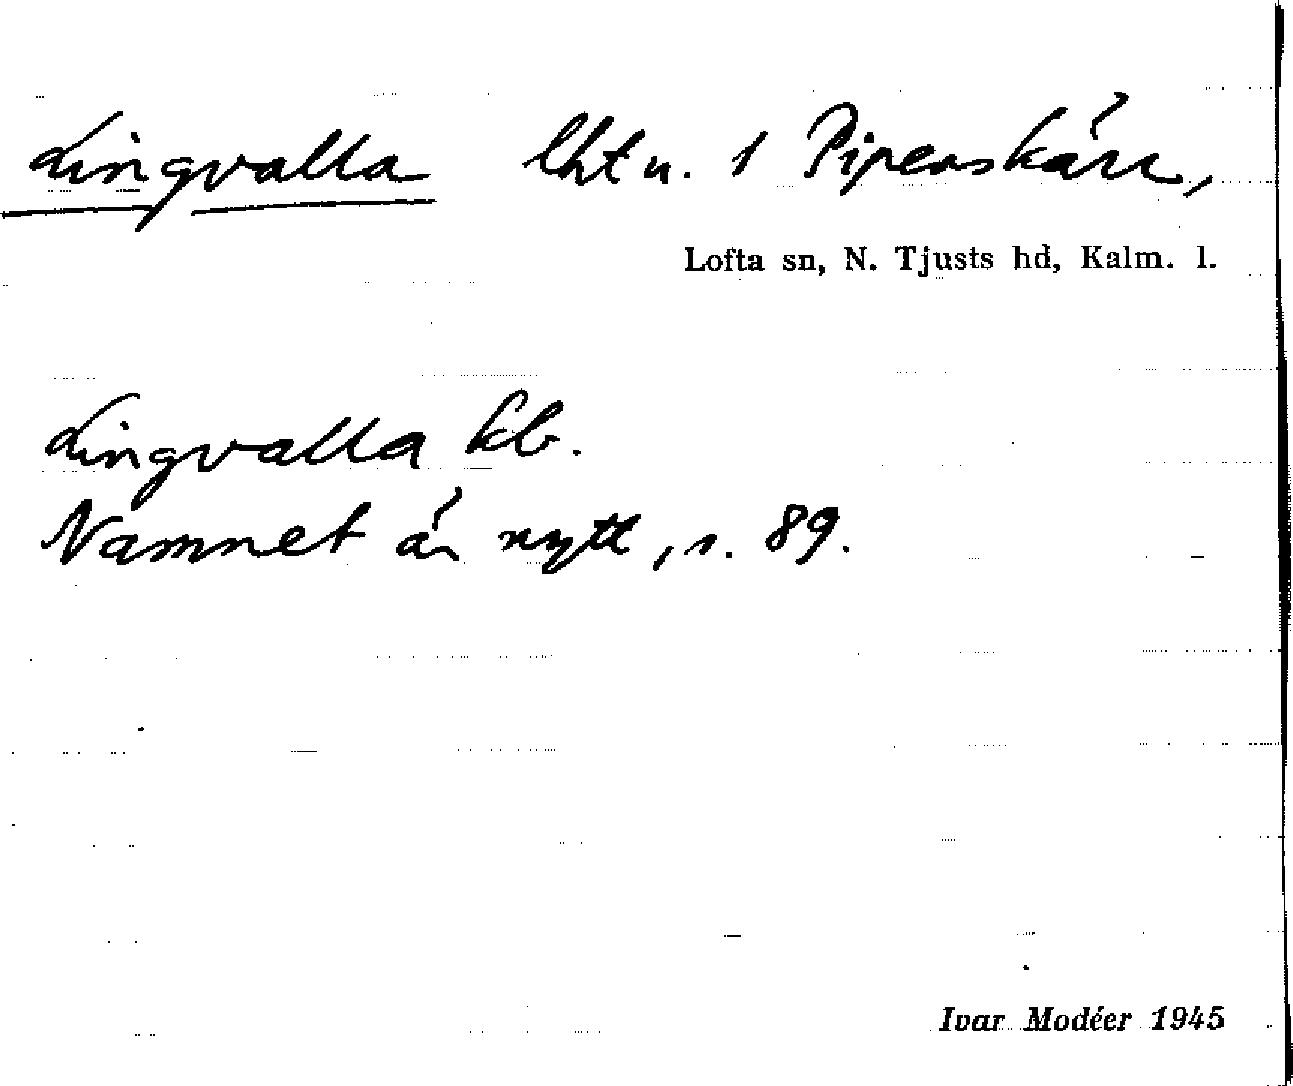 Lingvalla lht u. 1 Piperskärr,
Lofta sn, N. Tjusts hd, Kalm. l.
Lingvalla kb.
Namnet är nytt, s. 89.
Ivar Modéer 1945